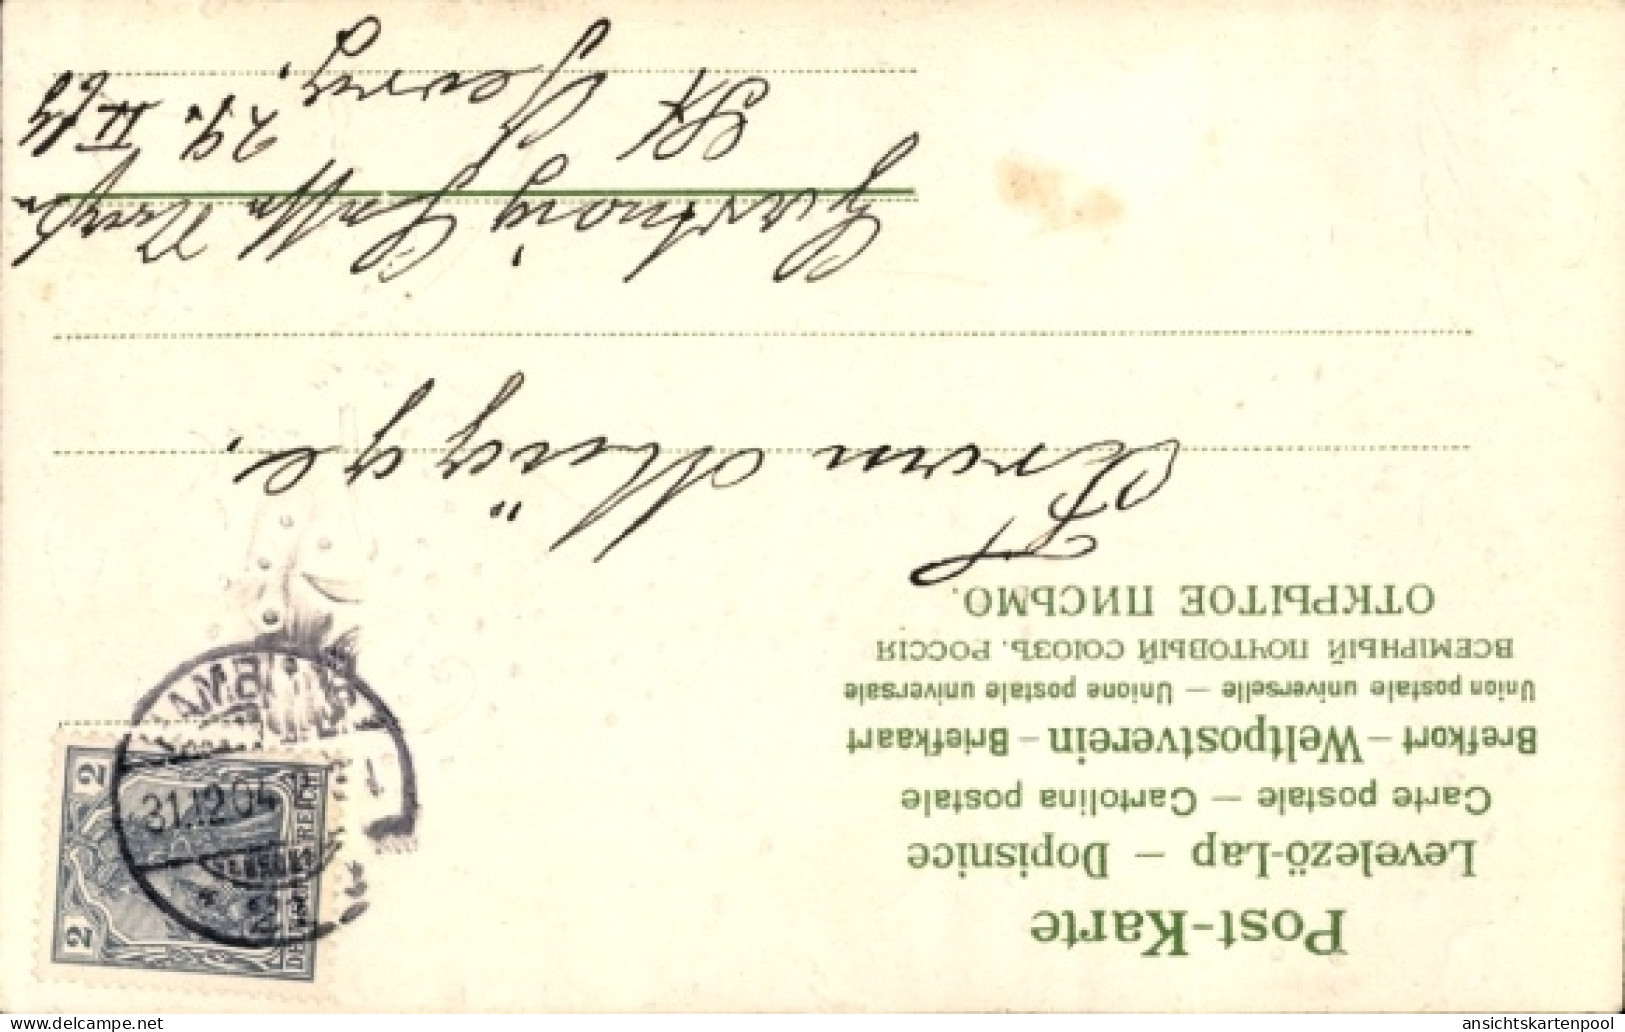 Post-Karte
Levelező-Lap — Dopisnice
Carte postale — Cartolina postale
Brefkort – Weltpostverein – Briefkaart
Union postale universelle — Unione postale universale
ВСЕМІРНЫЙ ПОЧТОВЫЙ СОЮЗЪ. РОССІЯ
ОТКРЫТОЕ ПИСЬМО.
2
DEUTSCHES REICH
2
HAMBURG
31.12.04
Frau Mügge.
St Georg.
delcampe.net
ansichtskartenpool